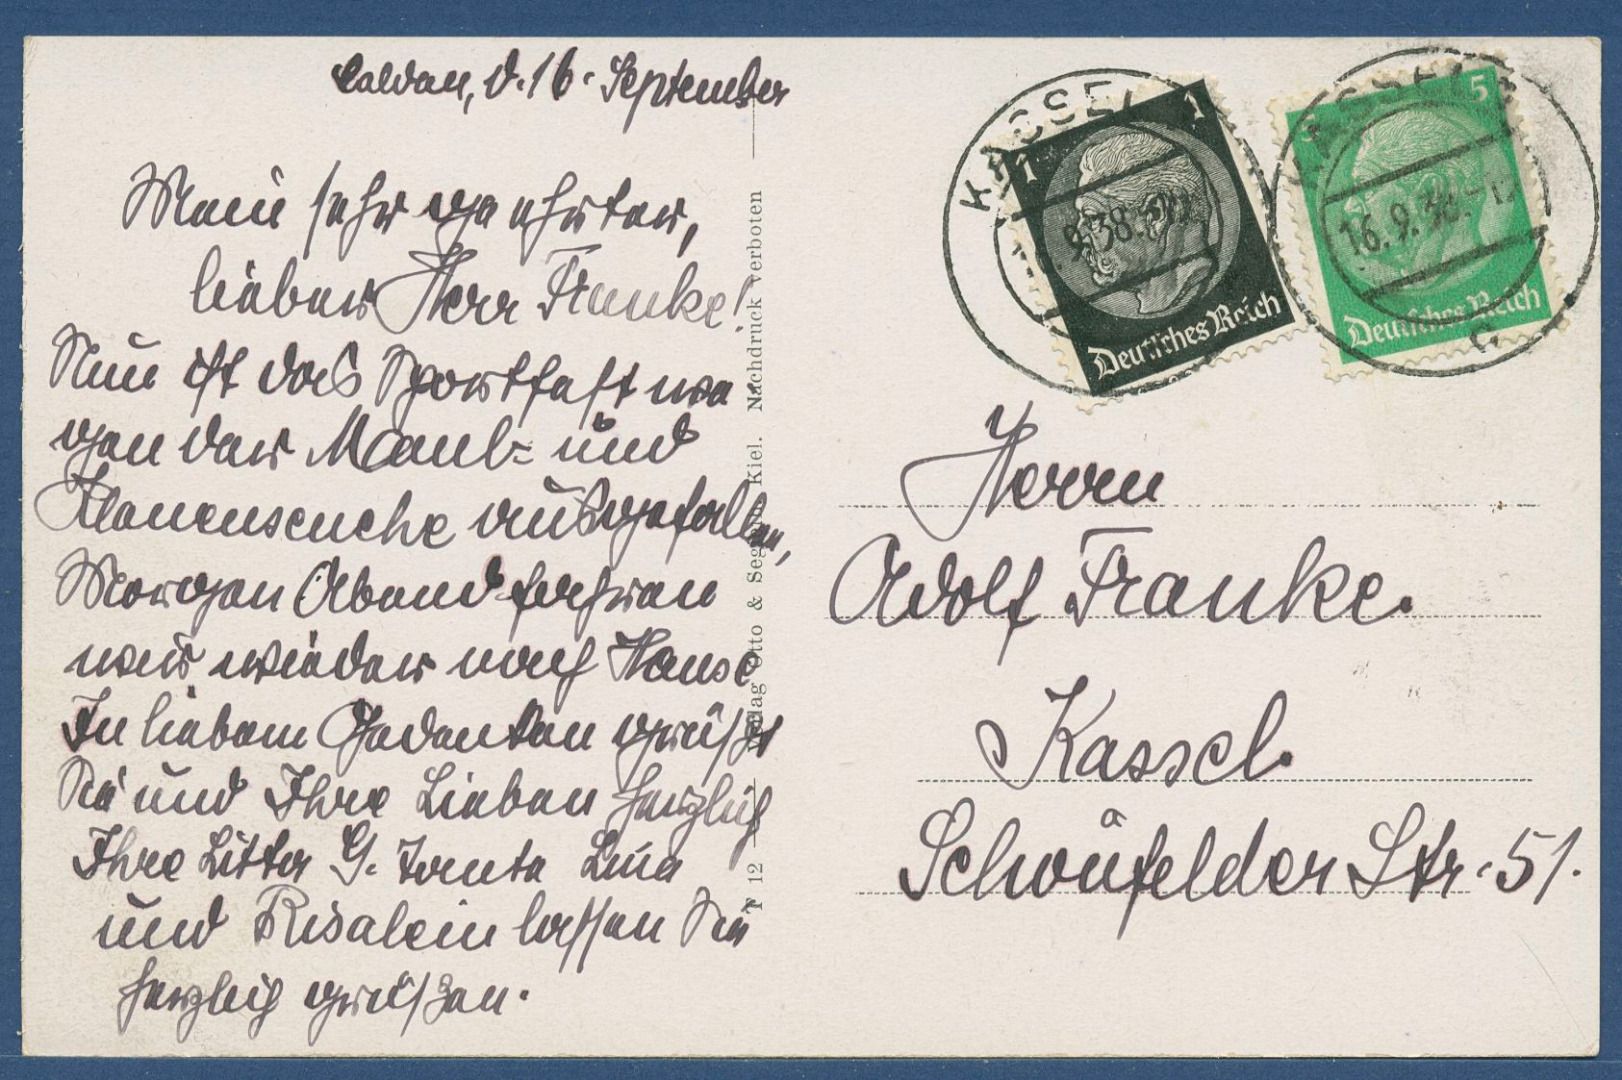 Caldau, d. 16. September
Mein sehr geehrter,
lieber Herr Franke!
Nun ist das Sportfest we
gen der Maul- und
Klauenseuche ausgefallen,
Morgen Abend fahren
wir wieder nach Hause
In liebem Gedenken grüßt
Sie und Ihre Lieben herzlich
Ihre G. Tante Lina
und lassen Sie
herzlich grüßen.
Verlag Otto & Kiel. Nachdruck verboten
T 12
KASSEL
9.38.
1
1
Deutsches Reich
KASSEL
16.9.38.-12
5
5
Deutsches Reich
c
Herrn
Adolf Franke.
Kassel.
Schönfelder Str. 51.